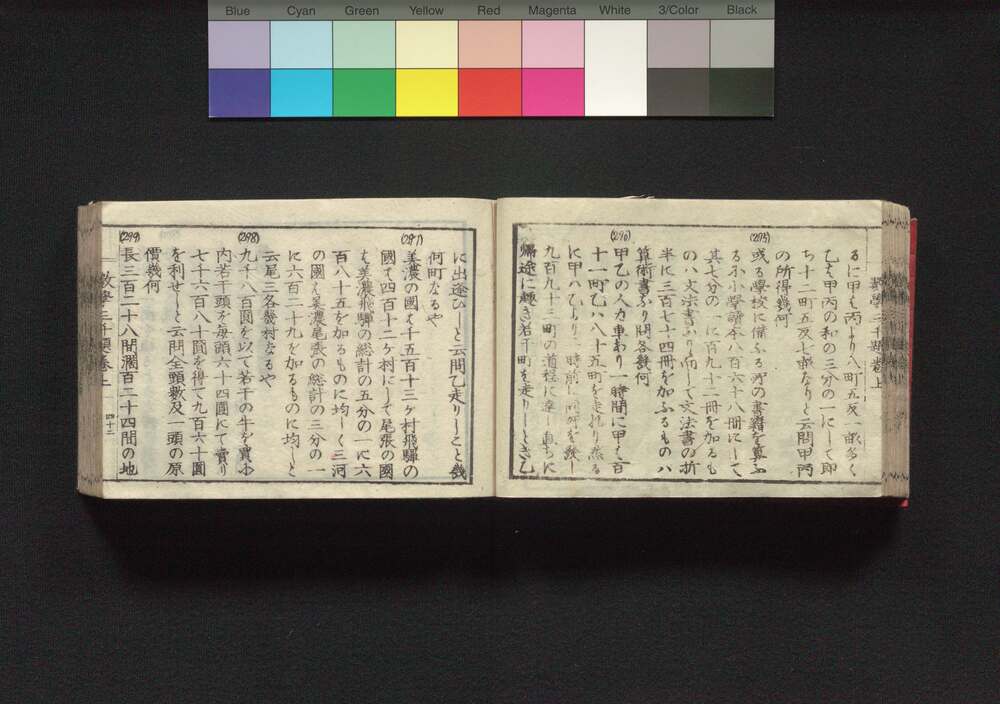 Blue Cyan Green Yellow Red Magenta White 3/Color Black
數學三千題卷上
るに甲も丙より八町九反一畝多く
乙は甲丙の和の三分の一にして即
ち十二町五反七畝なりと云問甲丙
の所得幾何
(295)
或る學校に備ふる所の書籍を算ふ
るに小學讀本八百六十八冊にして
其七分の一に百九十二冊を加るも
のハ文法書なり而して文法書の折
半に三百七十四冊を加ふるものハ
算術書なり問各幾何
(296)
甲乙の人力車あり一時間に甲も百
十一町乙ハ八十五町を走れり然る
に甲ハ乙より一時前に同所を發し
九百九十三町の道程に達し直ちに
歸途に趣き若干町を走りしとき乙
に出逢ひしと云問乙走りしこと幾
何町なるや
(297)
美濃の國は千五百十三ヶ村飛驒の
國は四百十二ヶ村にして尾張の國
は美濃飛驒の総計の五分の一に六
百八十五を加るものに均しく三河
の國は美濃尾張の総計の三分の一
に六百二十九を加るものに均しと
云尾三各幾村なるや
(298)
九千八百圓を以て若干の牛を買ふ
内若干頭を每頭六十四圓にて賣り
七千六百八十圓を得て九百六十圓
を利せしと云問全頭數及一頭の原
價幾何
(299)
長三百二十八間濶百二十四間の地
數學三千題卷上
四十二